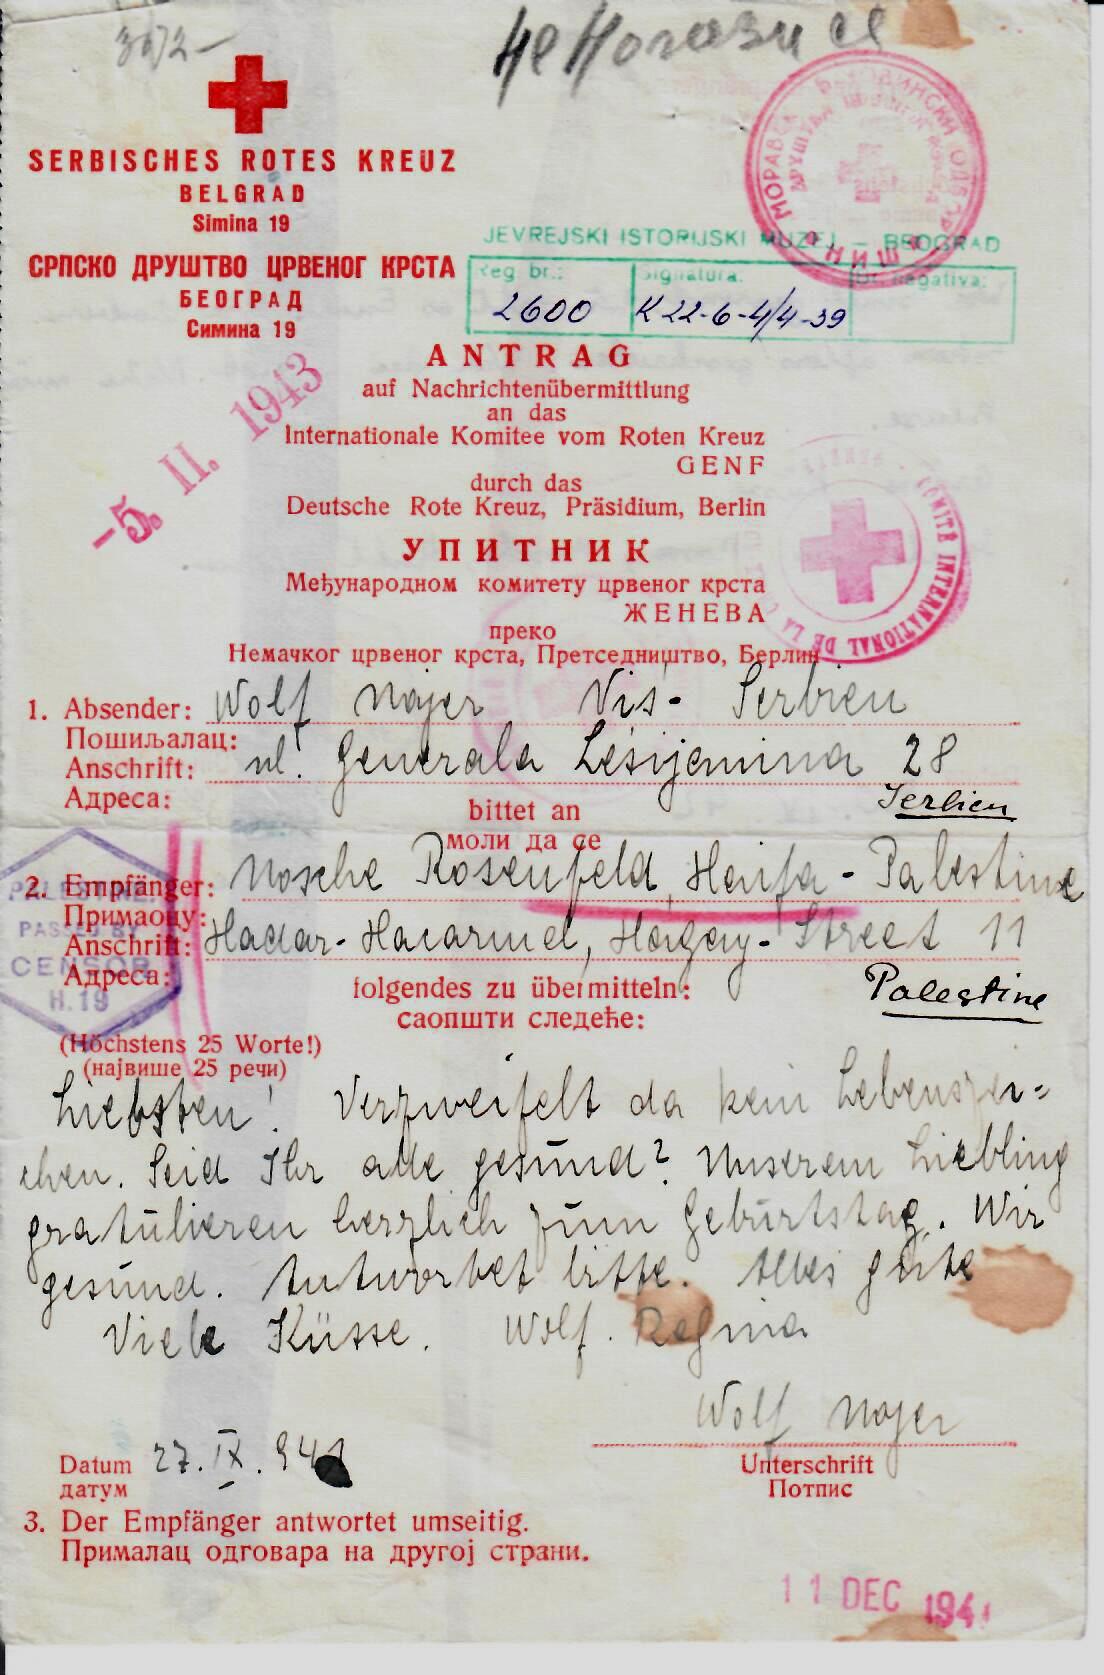 3072-
SERBISCHES ROTES KREUZ
BELGRAD
Simina 19
СРПСКО ДРУШТВО ЦРВЕНОГ КРСТА
БЕОГРАД
Симина 19
JEVREJSKI ISTORIJSKI MUZEJ – BEOGRAD
Reg br.: Signatura: Br. negativa:
2600 K 22-6-4/4-39
-5. II. 1943
ANTRAG
auf Nachrichtenübermittlung
an das
Internationale Komitee vom Roten Kreuz
GENF
durch das
Deutsche Rote Kreuz, Präsidium, Berlin
УПИТНИК
Међународном комитету црвеног крста
ЖЕНЕВА
преко
Немачког црвеног крста, Претседништво, Берлин
COMITÉ INTERNATIONAL DE LA
1. Absender: Wolf Majer Nis- Serbien
Пошиљалац:
Anschrift: ul. Generala Lešijemina 28
Адреса:
Serbien
bittet an
моли да се
2. Empfänger: Mosche Rosenfeld, Haifa - Palestine
Примаоцу:
Anschrift: Hadar-Hacarmel, Street 11
Адреса:
Palestine
PALESTINE
PASSED BY
CENSOR
H.19
folgendes zu übermitteln:
саопшти следеће:
(Höchstens 25 Worte!)
(највише 25 речи)
Liebsten! Verzweifelt da kein Lebenszei=
chen. Seid Ihr alle gesund? Unserem Liebling
gratulieren herzlich zum Geburtstag. Wir
gesund. Antwortet bitte. Alles gute
Viele Küsse. Wolf. Regina
Wolf Majer
Datum 27. IX. 941
датум
Unterschrift
Потпис
3. Der Empfänger antwortet umseitig.
Прималац одговара на другој страни.
11 DEC 1941